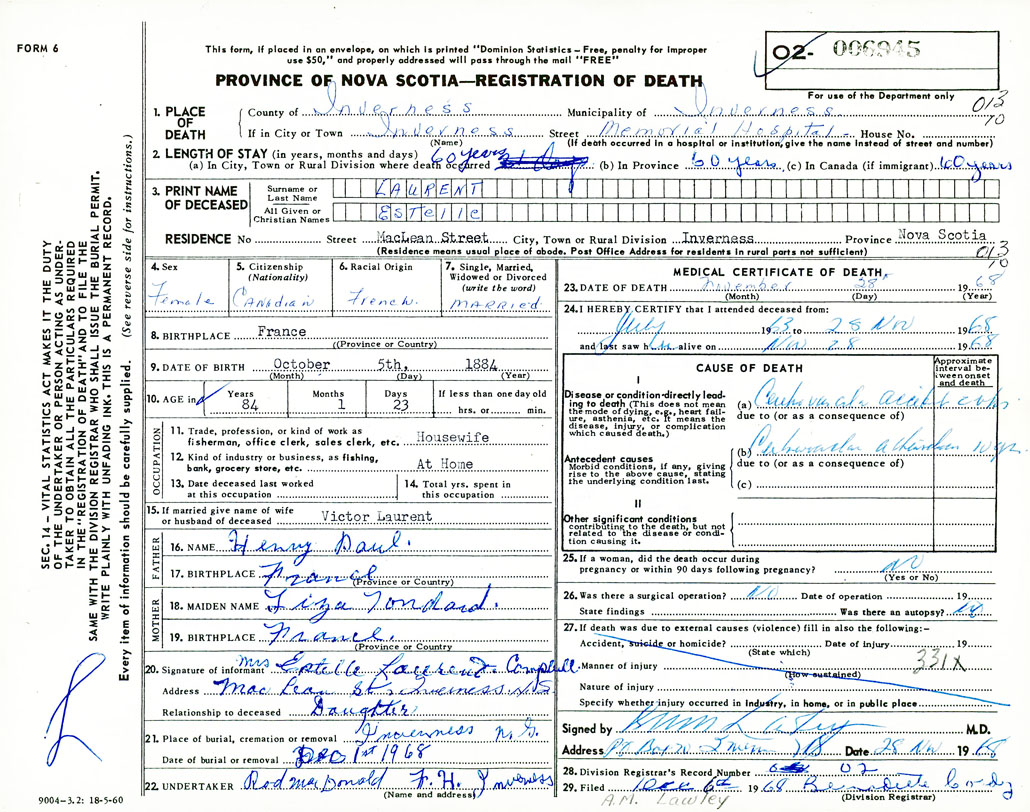 FORM 6
This form, if placed in an envelope, on which is printed "Dominion Statistics – Free, penalty for improper
use $50," and properly addressed will pass through the mail "FREE"
O2- 006945
PROVINCE OF NOVA SCOTIA—REGISTRATION OF DEATH
For use of the Department only
013
10
1. PLACE OF DEATH
County of Inverness Municipality of Inverness
If in City or Town Inverness Street Memorial Hospital – House No.
(Name) (If death occurred in a hospital or institution, give the name instead of street and number)
2. LENGTH OF STAY (in years, months and days)
(a) In City, Town or Rural Division where death occurred 60 years (b) In Province 60 years (c) In Canada (if immigrant) 60 years
3. PRINT NAME OF DECEASED
Surname or Last Name LAURENT
All Given or Christian Names ESTELLE
RESIDENCE No Street MacLean Street City, Town or Rural Division Inverness Province Nova Scotia
(Residence means usual place of abode. Post Office Address for residents in rural parts not sufficient)
013
10
4. Sex Female
5. Citizenship (Nationality) CANADIAN
6. Racial Origin French
7. Single, Married, Widowed or Divorced (write the word) MARRIED
8. BIRTHPLACE France
(Province or Country)
9. DATE OF BIRTH October 5th, 1884
(Month) (Day) (Year)
10. AGE in Years 84 Months 1 Days 23 If less than one day old hrs. or min.
OCCUPATION
11. Trade, profession, or kind of work as
fisherman, office clerk, sales clerk, etc. Housewife
12. Kind of industry or business, as fishing,
bank, grocery store, etc. At Home
13. Date deceased last worked
at this occupation
14. Total yrs. spent in
this occupation
15. If married give name of wife
or husband of deceased Victor Laurent
FATHER
16. NAME Henry Paul.
17. BIRTHPLACE France
(Province or Country)
MOTHER
18. MAIDEN NAME Liza Tondard.
19. BIRTHPLACE France.
(Province or Country)
20. Signature of informant Mrs Estelle Laurent Campbell.
Address MacLean St. Inverness N.S
Relationship to deceased Daughter
21. Place of burial, cremation or removal Inverness N.S.
Date of burial or removal Dec 1st 1968
22. UNDERTAKER Rod MacDonald F. H. Inverness
(Name and address)
9004-3.2: 18-5-60
MEDICAL CERTIFICATE OF DEATH
23. DATE OF DEATH November 28 1968
(Month) (Day) (Year)
24. I HEREBY CERTIFY that I attended deceased from:
July 1963 to 28 Nov 1968
and last saw h alive on Nov 28 1968
CAUSE OF DEATH
Approximate interval between onset and death
I
Disease or condition directly leading to death (This does not mean
the mode of dying, e.g., heart failure, asthenia, etc. It means the
disease, injury, or complication
which caused death.)
(a)
due to (or as a consequence of)
Antecedent causes
Morbid conditions, if any, giving
rise to the above cause, stating
the underlying condition last.
(b)
due to (or as a consequence of)
(c)
II
Other significant conditions
contributing to the death, but not
related to the disease or condition causing it.
25. If a woman, did the death occur during
pregnancy or within 90 days following pregnancy? No
(Yes or No)
26. Was there a surgical operation? No Date of operation 19
State findings Was there an autopsy? No
27. If death was due to external causes (violence) fill in also the following:–
Accident, suicide or homicide? Date of injury 19
(State which)
331X
Manner of injury
(How sustained)
Nature of injury
Specify whether injury occurred in industry, in home, or in public place
Signed by M.D.
Address Date 28 Nov 1968
28. Division Registrar's Record Number 02
29. Filed Dec 6th 1968
(Division Registrar)
A.M. Lawley
SEC. 14 – VITAL STATISTICS ACT MAKES IT THE DUTY
OF THE UNDERTAKER OR PERSON ACTING AS UNDER-
TAKER TO OBTAIN ALL THE PARTICULARS REQUIRED
IN THE "REGISTRATION OF DEATH" AND TO FILE THE
SAME WITH THE DIVISION REGISTRAR WHO SHALL ISSUE THE BURIAL PERMIT.
WRITE PLAINLY WITH UNFADING INK. THIS IS A PERMANENT RECORD.
Every item of information should be carefully supplied. (See reverse side for instructions.)